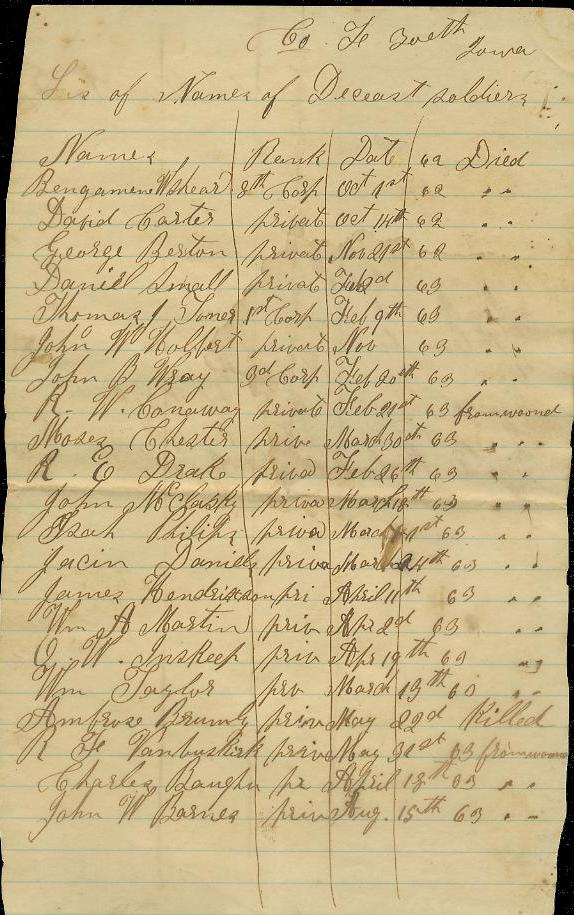 Co. F 30eth
Iowa
Lis of Names of Deceast soldiers
Names Rank Dat 62 Died
Bengamene W shear 8th Corp Oct 1st 62 " "
David Carter privait Oct 14th 62 " "
George Berton privat Nov 21st 62 " "
Daniel Small privat Feb 2d 63 " "
Thomas J Jones 1st Corp Feb 9th 63 " "
John W Holbert privat Nov 63 " "
John B Wray 3d Corp Feb 20th 63 " "
R. W. Canaway privat Feb 21st 63 from woond
Moses Chester prive March 30st 63 " " "
R. E Drake privad Feb 26th 63 " "
John McClasky privad March 18th 63 " "
Isah Philips privad March 1st 63 " "
Jacin Daniels priva March 24th 63 " "
James Hendrixson pri April 11th 63 " "
Wm A Martin priv Apr 2d 63 " "
G. W. Inskeep priv Apr 19th 63 " "
Wm Taylor prv March 13th 63 " "
Ambrose Brumly priv May 22d Killed
R F Vanbuskirk priv May 31st 63 from woon
Charles Baughn pr April 18th 63 " "
John W Barnes priv Aug. 15th 63 " "